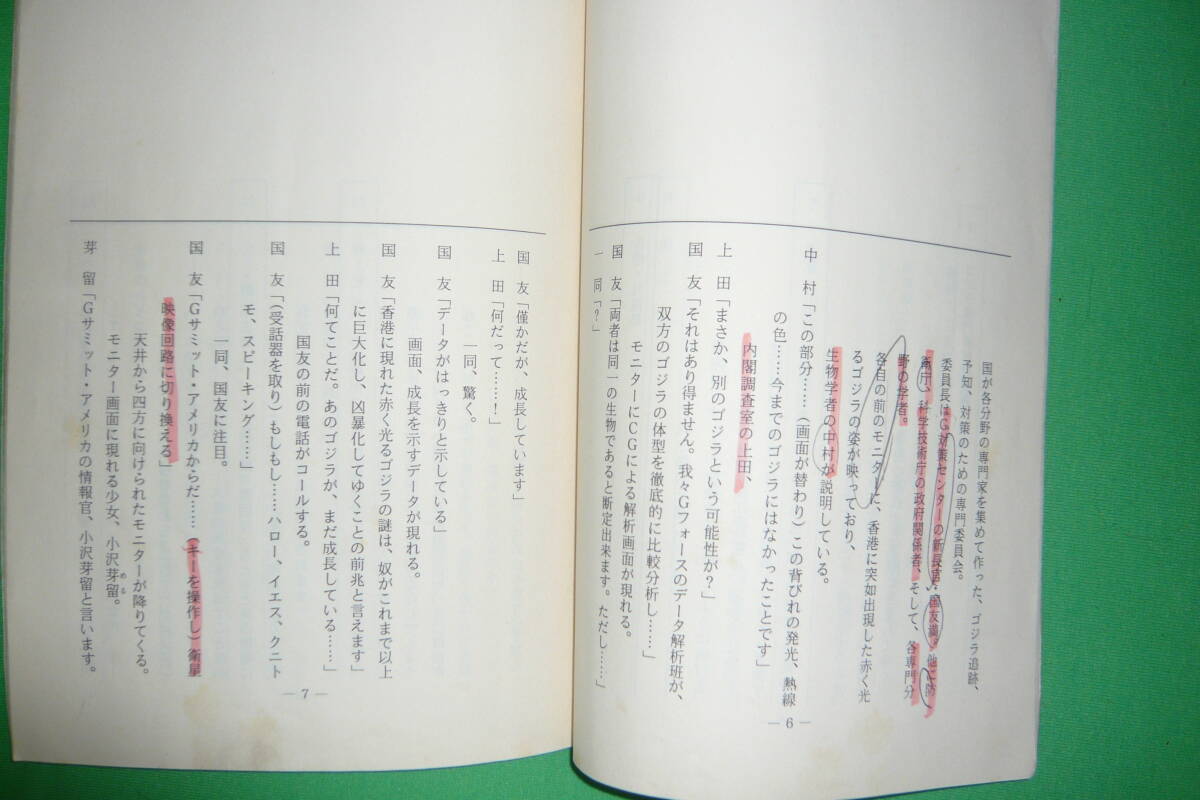 国が各分野の専門家を集めて作った、ゴジラ追跡、
予知、対策のための専門委員会。
委員長はG対策センターの新長官・国友満。他に防
衛庁、科学技術庁の政府関係者、そして、各専門分
野の学者。
各自の前のモニターに、香港に突如出現した赤く光
るゴジラの姿が映っており、
生物学者の中村が説明している。
中　村「この部分……（画面が替わり）この背びれの発光、熱線
の色……今までのゴジラにはなかったことです」
内閣調査室の上田、
上　田「まさか、別のゴジラという可能性が？」
国　友「それはあり得ません。我々Gフォースのデータ解析班が、
双方のゴジラの体型を徹底的に比較分析し……」
モニターにCGによる解析画面が現れる。
国　友「両者は同一の生物であると断定出来ます。ただし……」
一　同「？」
— 6 —
国　友「僅かだが、成長しています」
上　田「何だって……！」
一同、驚く。
国　友「データがはっきりと示している」
画面、成長を示すデータが現れる。
国　友「香港に現れた赤く光るゴジラの謎は、奴がこれまで以上
に巨大化し、凶暴化してゆくことの前兆と言えます」
上　田「何てことだ。あのゴジラが、まだ成長している……」
国友の前の電話がコールする。
国　友「（受話器を取り）もしもし……ハロー、イエス、クニト
モ、スピーキング……」
一同、国友に注目。
国　友「Gサミット・アメリカからだ……（キーを操作し）衛星
映像回路に切り換える」
天井から四方に向けられたモニターが降りてくる。
モニター画面に現れる少女、小沢芽留。
める
芽　留「Gサミット・アメリカの情報官、小沢芽留と言います。
— 7 —